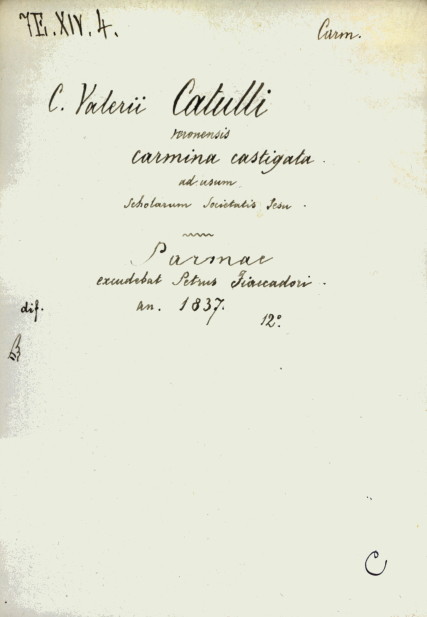 7E.XIV.4.
Carm.
C. Valerii Catulli
veronensis
carmina castigata.
ad usum
Scholarum Societatis Jesu.
Parmae
excudebat Petrus Fiaccadori.
dif. an. 1837.
12°.
C